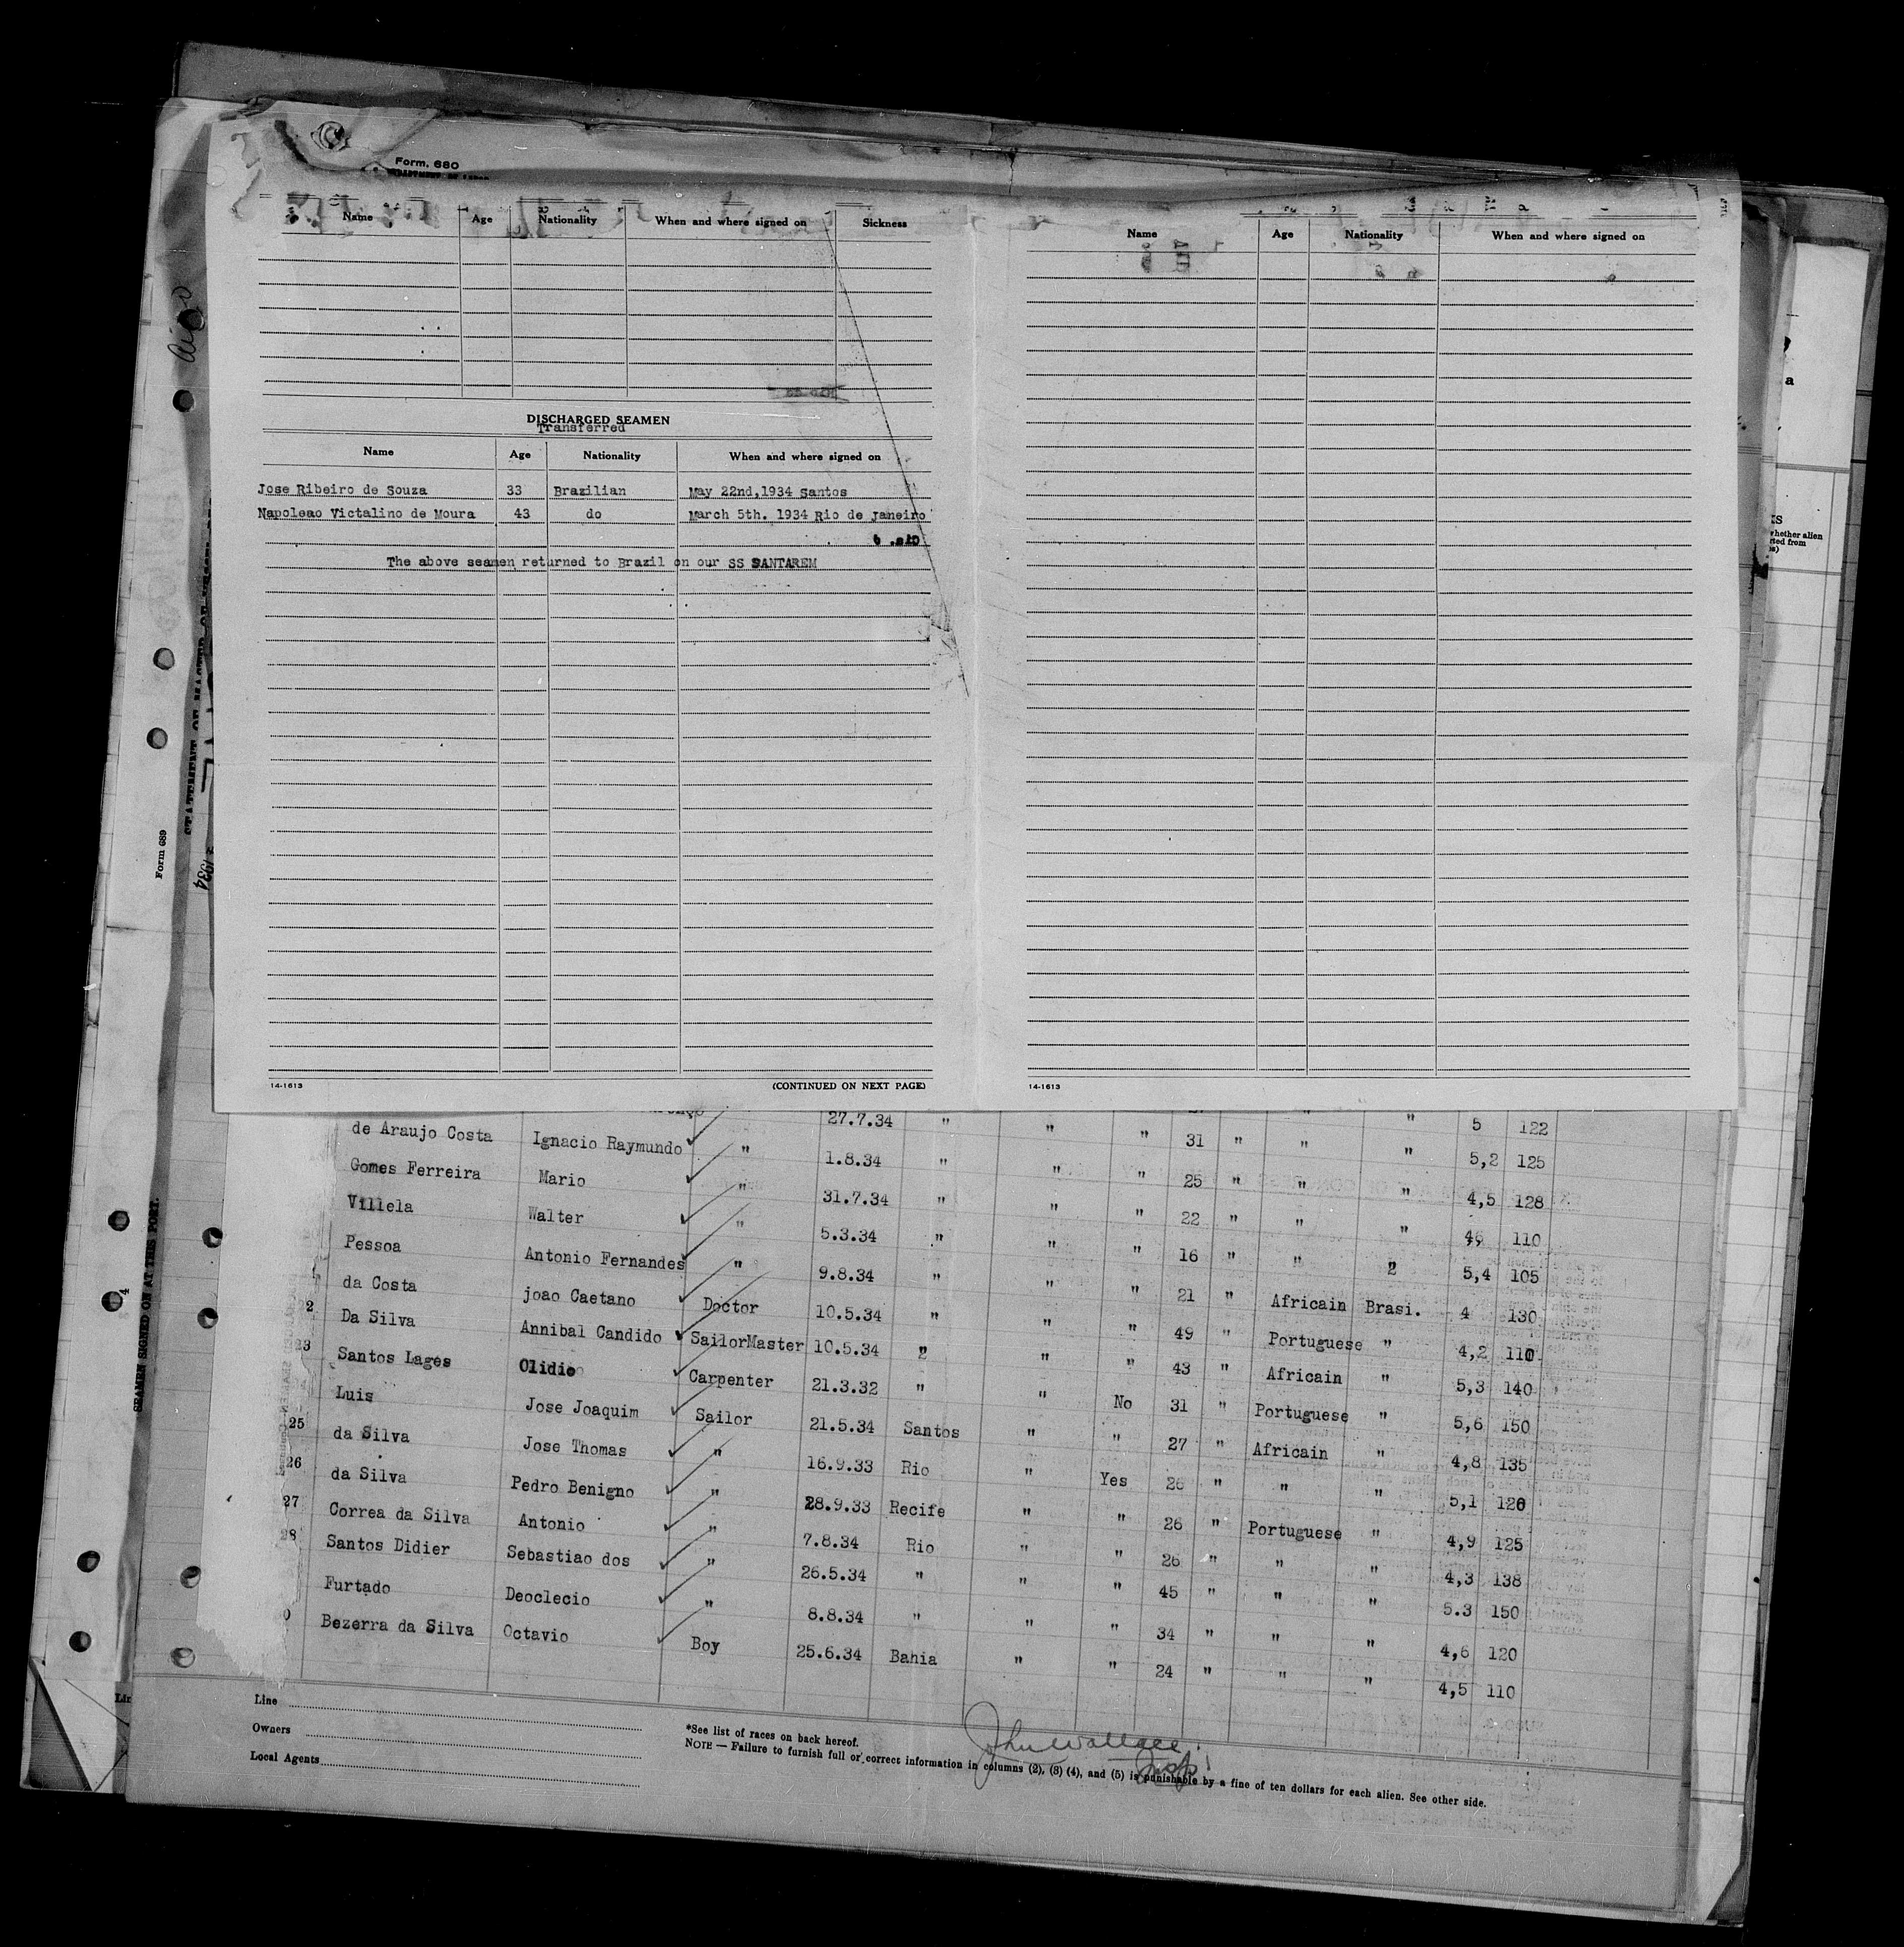 Form. 680
Name Age Nationality When and where signed on Sickness
DISCHARGED SEAMEN
Transferred
Name Age Nationality When and where signed on
Jose Ribeiro de Souza 33 Brazilian May 22nd,1934 Santos
Napoleao Victalino de Moura 43 do March 5th. 1934 Rio de Janeiro
The above seamen returned to Brazil on our SS SANTAREM
14-1613 (CONTINUED ON NEXT PAGE)
Name Age Nationality When and where signed on
14-1613
5 122
27.7.34 " " " 31 " " " 5,2 125
de Araujo Costa Ignacio Raymundo " 1.8.34 " " " 25 " " " 4,5 128
Gomes Ferreira Mario " 31.7.34 " " " 22 " " " 110
Villela Walter " 5.3.34 " " " 16 " " 2 5,4 105
Pessoa Antonio Fernandes " 9.8.34 " " " 21 " Africain Brasi. 4 130
da Costa joao Caetano Doctor 10.5.34 " " " 49 " Portuguese " 4,2 110
2 Da Silva Annibal Candido SailorMaster 10.5.34 2 " " 43 " Africain " 5,3 140
23 Santos Lages Olidio Carpenter 21.3.32 " " No 31 " Portuguese " 5,6 150
Luis Jose Joaquim Sailor 21.5.34 Santos " " 27 " Africain " 4,8 135
25 da Silva Jose Thomas " 16.9.33 Rio " Yes 26 " " " 5,1 120
26 da Silva Pedro Benigno " 28.9.33 Recife " " 26 " Portuguese " 4,9 125
27 Correa da Silva Antonio " 7.8.34 Rio " " 26 " " " 4,3 138
28 Santos Didier Sebastiao dos " 26.5.34 " " " 45 " " " 5.3 150
Furtado Deoclecio " 8.8.34 " " " 34 " " " 4,6 120
0 Bezerra da Silva Octavio Boy 25.6.34 Bahia " " 24 " " " 4,5 110
Line
Owners
Local Agents
*See list of races on back hereof.
NOTE — Failure to furnish full or correct information in columns (2), (3) (4), and (5) is punishable by a fine of ten dollars for each alien. See other side.
John Wallace
Insp
Form 689
1934
SEAMEN SIGNED ON AT THIS PORT.
4
a
whether alien